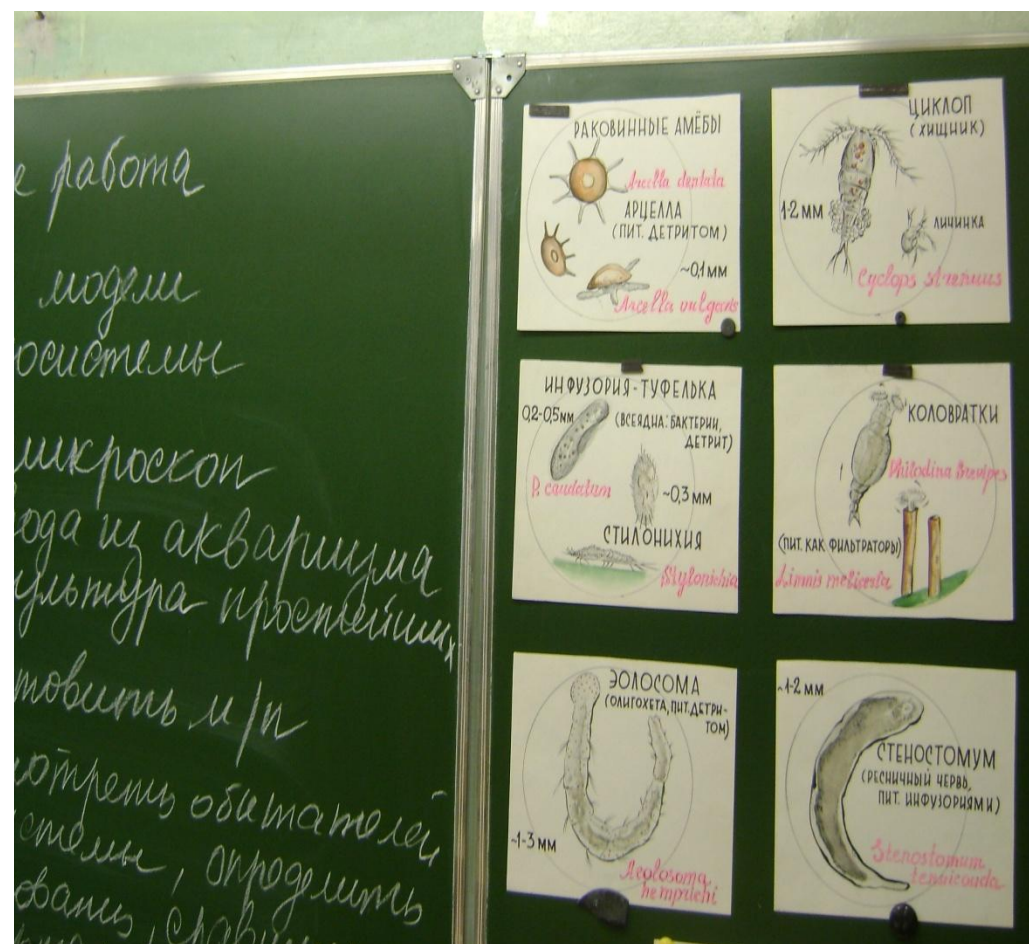 е работа
модели
осистемы
микроскоп
ода из аквариума
ультура простейших
товить м/п
мотреть обитателей
стемы, определить
РАКОВИННЫЕ АМЁБЫ
Arcella dentata
АРЦЕЛЛА
(ПИТ. ДЕТРИТОМ)
~0,1 мм
Arcella vulgaris
ЦИКЛОП
(ХИЩНИК)
1-2 мм
ЛИЧИНКА
Cyclops strenuus
ИНФУЗОРИЯ-ТУФЕЛЬКА
0,2-0,5мм
(ВСЕЯДНА: БАКТЕРИИ,
ДЕТРИТ)
P. caudatum
~0,3 мм
СТИЛОНИХИЯ
Stylonichia
КОЛОВРАТКИ
Philodina brevipes
(ПИТ. КАК ФИЛЬТРАТОРЫ)
Limnis melicerta
ЭОЛОСОМА
(ОЛИГОХЕТА, ПИТ. ДЕТРИ-
ТОМ)
~1-3 мм
Aeolosoma
hemprichi
~1-2 мм
СТЕНОСТОМУМ
(РЕСНИЧНЫЙ ЧЕРВЬ,
ПИТ. ИНФУЗОРИЯМИ)
Stenostomum
tenuicauda